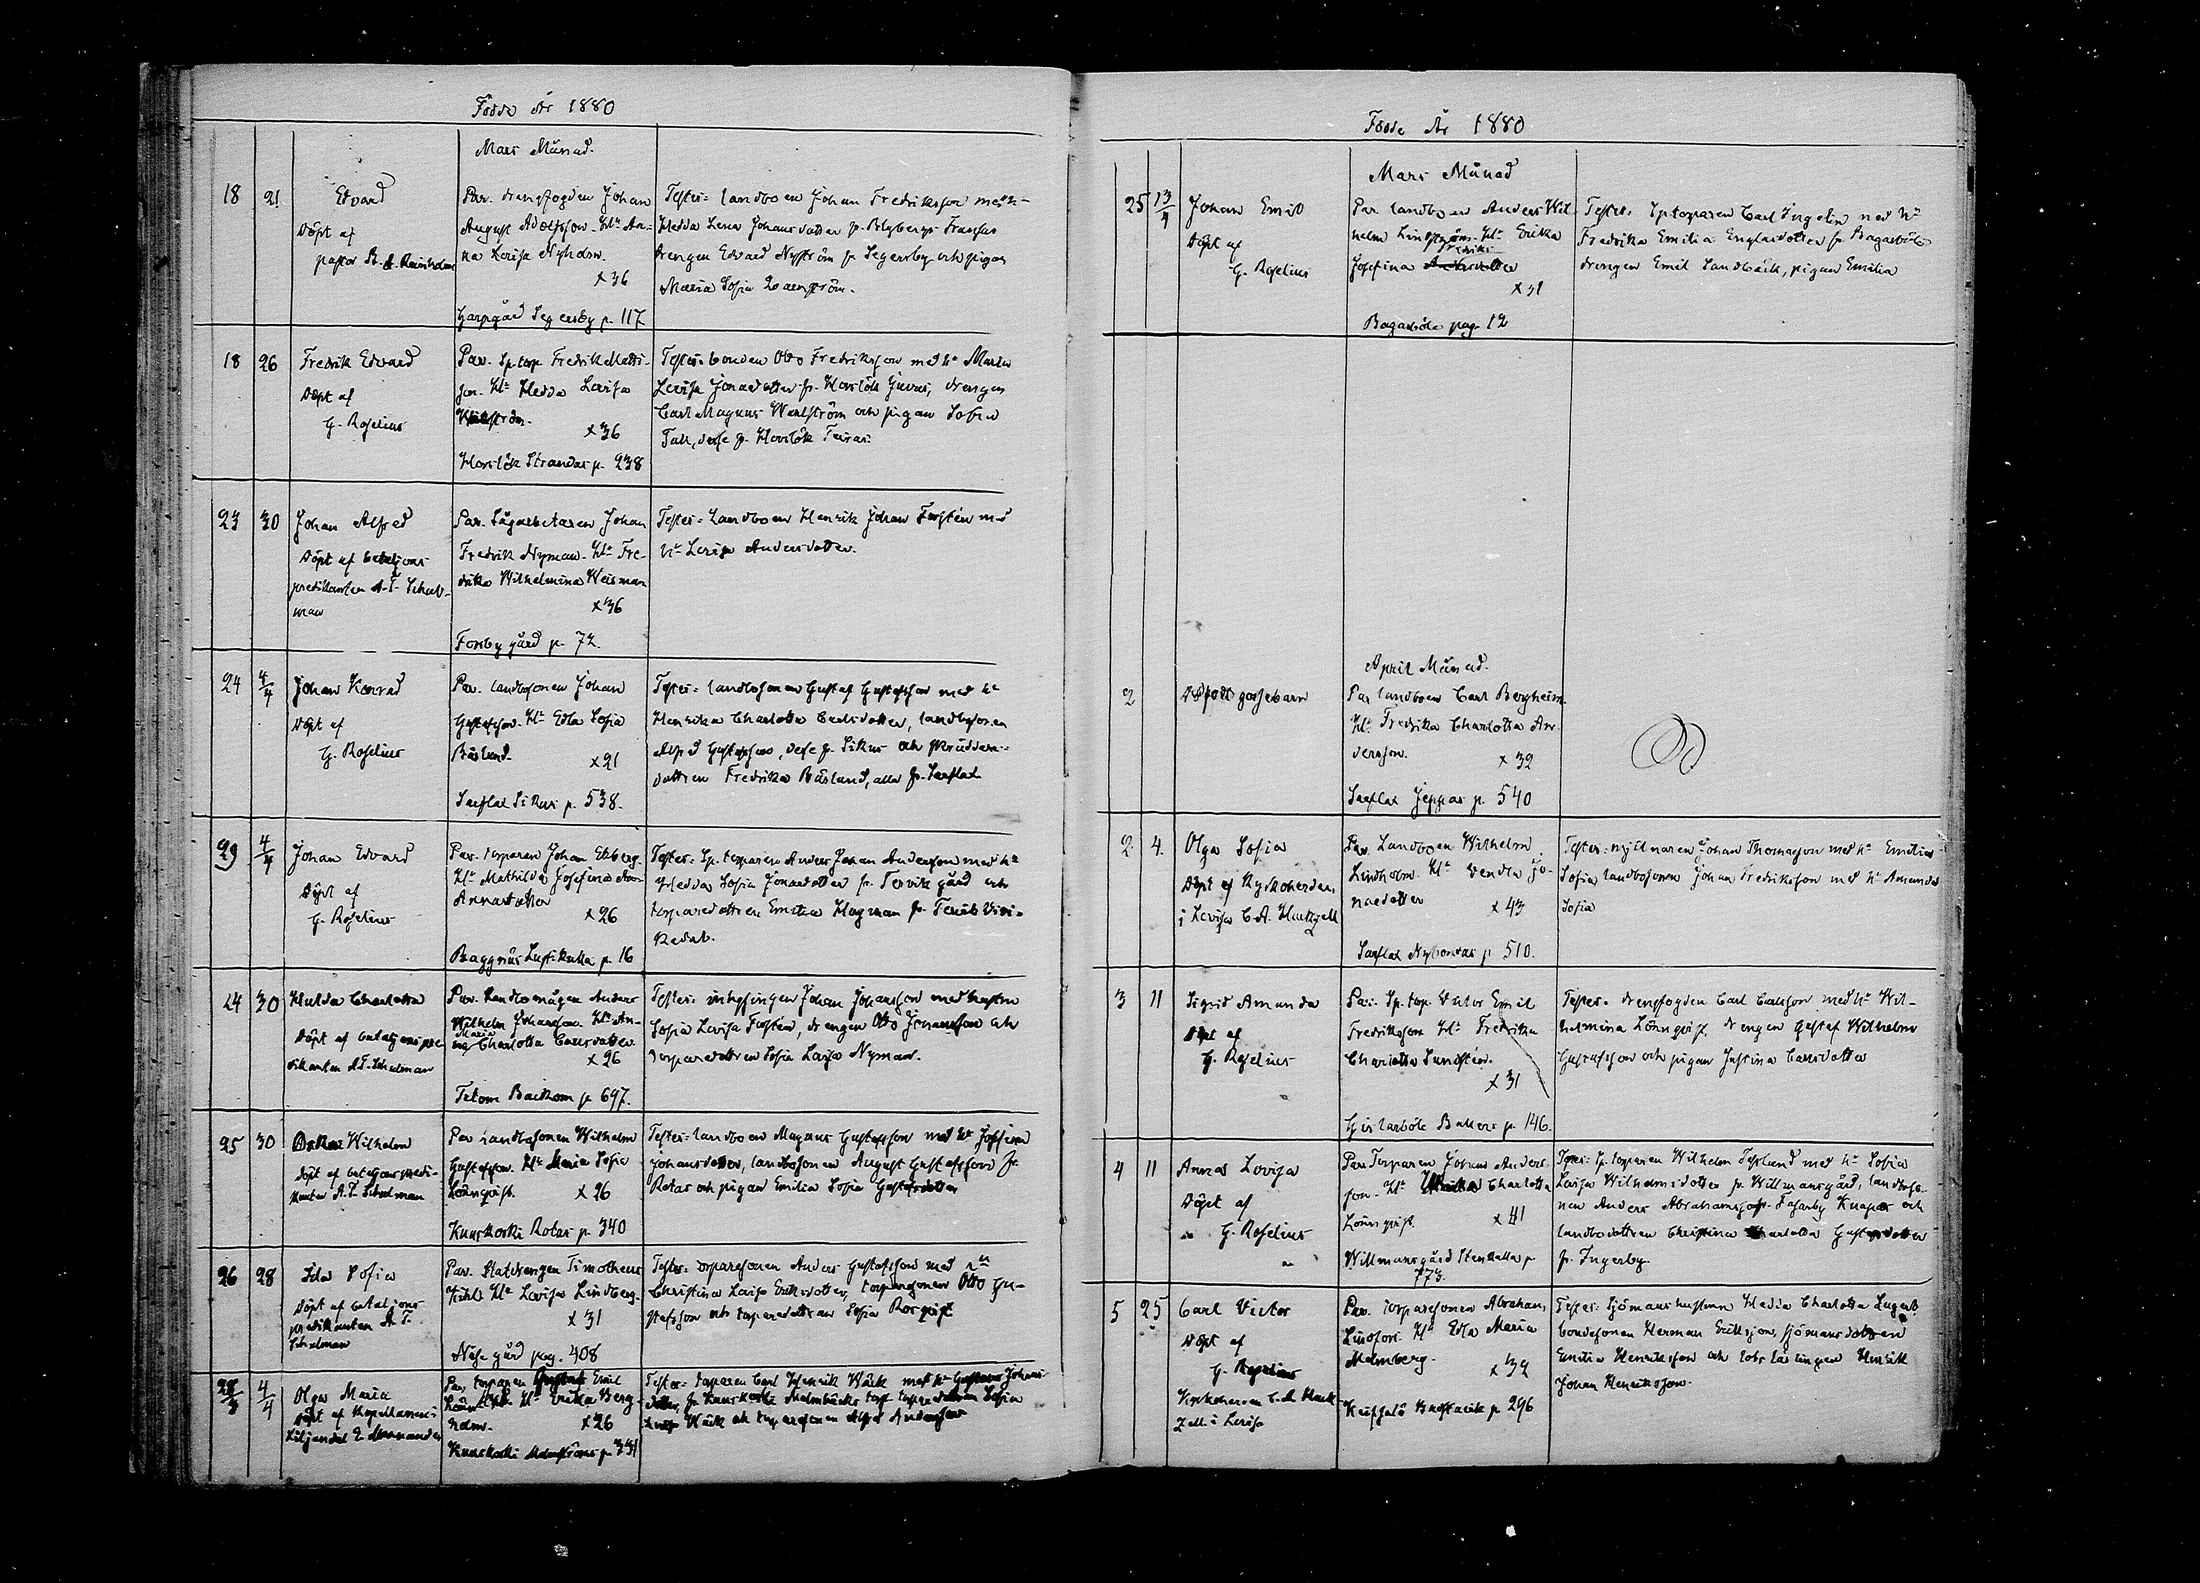 Födde År 1880
Mars Månad.
18 21 Edvard
Döpt af
pastor
Par. drengfogden Johan
August Adolfsson. H:u An-
na Lovisa Nyholm.
x 36
Garpgård Segersby p. 117
Testes: landboen Johan Fredriksson med h:u
Hedda Lena Johansdotter fr.
drengen Edvard Nyström fr. Segersby och pigan
Maria Sofia
18 26 Fredrik Edvard
Döpt af
G. Roselius
Par. Sp. torp. Fredrik Matts-
son. H:u Hedda Lovisa
x 36
Hovslök Strandas p. 238
Testes: bonden Otto Fredriksson med h:u Maria
Lovisa Jonasdotter fr. Hovslök drengen
Carl Magnus Wahlström och pigan Sofia
Falk, desse fr. Hovslök
23 30 Johan Alfred
Döpt af bataljons
predikanten A. T. Schul-
man
Par. Sågarbetaren Johan
Fredrik Nyman. H:u Fre-
drika Wilhelmina Weisman
x 36
Forsby gård p. 72.
Testes: Landboen Henrik Johan Forstén med
h:u Lovisa Andersdotter.
24 4/4 Johan Konrad
Döpt af
G. Roselius
Par. landbosonen Johan
Gustafsson. H:u Edla Sofia
Båslund.
x 21
Sarflax Sikus p. 538.
Testes: landbosonen Gustaf Gustafsson med h:u
Henrika Charlotta Carlsdotter, landbosonen
Alfred Gustafsson, desse fr. Sikus och
dottren Fredrika Båslund, alla fr. Sarflax
29 4/4 Johan Edvard
Döpt af
G. Roselius
Par. torparen Johan Ekberg.
H:u Mathilda Josefina
x 26
Baggnäs Lustikulla p. 16
Testes: Sp. torparen Anders Johan Andersson med h:u
Hedda Sofia Jonasdotter fr. Tervik gård och
torparedottren Emelia Hagman fr.
24 30 Hulda Charlotta
Döpt af bataljonspre-
dikanten A. T. Schulman
Par. Landbomågen Anders
Wilhelm Johansson. H:u An-
Maria
na Charlotta Carlsdotter
x 26
Tetom Backom p. 697.
Testes: inhysingen Johan Johansson med hustru
Sofia Lovisa Forstén, drengen Otto Johansson och
torparedottren Sofia Lovisa Nyman.
25 30 Oskar Wilhelm
Döpt af bataljonspredi-
kanten A. T. Schulman
Par landbosonen Wilhelm
Gustafsson. H:u Maria Sofia
Lönnqvist.
x 26
Kuuskoski Rotas p. 340
Testes: landboen Magnus Gustafsson med h:u Josefina
Johansdotter, landbosonen August Gustafsson fr.
Rotas och pigan Emilia Sofia Gustafsdotter
26 28 Ida Sofia
Döpt af bataljons
predikanten A. T.
Schulman
Par. Statdrengen Timotheus
H:u Lovisa Lindberg.
x 31
Näse gård pag. 408
Testes: torparesonen Anders Gustafsson med h:u
Christina Lovisa Eriksdotter, torparesonen Otto Gu-
stafsson och torparedottren Sofia Rosqvist
28/3 4/4 Olga Maria
Döpt af Kapellanen i
Liljendal
Par. torparen Emil
H:u Erika Berg-
holm.
x 26
Kuuskoski Malmströms p. 331
Testes: torparen Carl Henrik Wäck med h:u Gustava Johans-
dotter, fr. Kuuskoski Malmbäcks torp torparedottren Sofia
Wäck och torparesonen Alfred Andersson
Födde År 1880
Mars Månad
25 13/4 Johan Emil
Döpt af
G. Roselius
Par. landboen Anders Wil-
helm Lindström. H:u Erika
Fredriks
Josefina
x 31
Bagarböle pag. 12
Testes: Sp. torparen Carl Ingelin med h:u
Fredrika Emilia Englasdotter fr. Bagarböle
drengen Emil Sandbäck, pigan Emilia
April Månad.
2 Dödfött gossebarn
Par landboen Carl Bergheim.
H:u Fredrika Charlotta An-
dersson.
x 32
Sarflax Jeppas p. 540
2 4. Olga Sofia
Döpt af Kyrkoherden
i Lovisa C. A. Hackzell
Par. Landboen Wilhelm
Lindholm. H:u Vendla Jo-
nasdotter
x 43
Sarflax Nybondas p. 510.
Testes: mjölnaren Johan Thomasson med h:u Emilia
Sofia landbosonen Johan Fredriksson med h:u Amanda
Sofia
3 11 Sigrid Amanda
Döpt af
G. Roselius
Par. Sp. torp. Victor Emil
Fredriksson H:u Fredrika
Charlotta Sundstén.
x 31
Gislarböle Backers p. 146.
Testes: drengfogden Carl Carlsson med h:u Wil-
helmina Lönnqvist, drengen Gustaf Wilhelm
Gustafsson och pigan Justina Carlsdotter
4 11 Anna Lovisa
Döpt af
G. Roselius
Par. Torparen Johan Anders-
son. H:u Ulrika Charlotta
Lönnqvist.
x 41
Willmansgård Stenkulla p
773.
Testes: Sp. torparen Wilhelm Teslund med h:u Sofia
Lovisa Wilhelmsdotter fr. Willmansgård, landboso-
nen Anders Abrahamsson fr. Fasarby Knapas och
landbodottren Christina Charlotta Gustafsdotter
fr. Ingerby
5 25 Carl Victor
Döpt af
G. Roselius
Kyrkoherden C. A. Hack-
zell i Lovisa
Par. torparesonen Abraham
Lindfors. H:u Edla Maria
Malmberg.
x 32
p. 296
Testes: Sjömanshustrun Hedda Charlotta
bondesonen Herman Eriksson, sjömansdottren
Emilia Henriksson och lotslärlingen Henrik
Johan Henriksson.